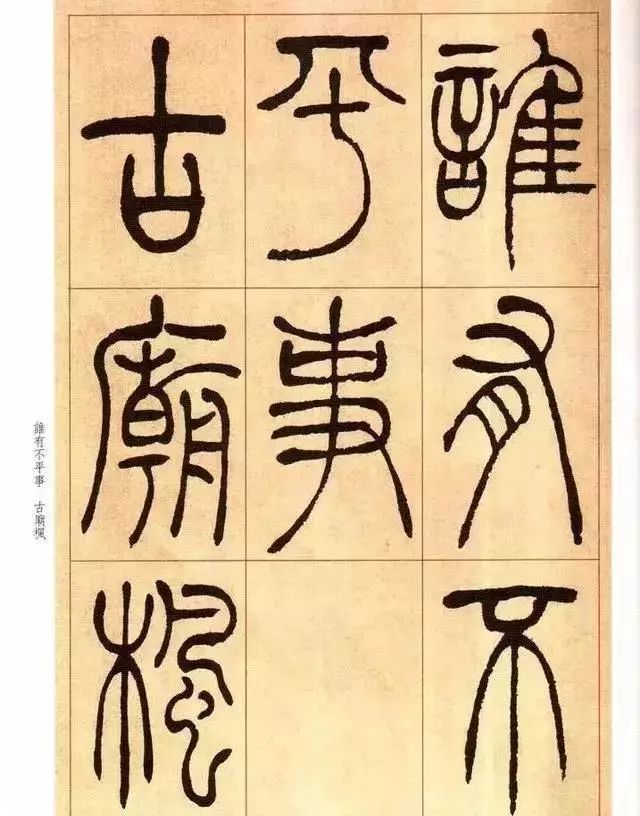 誰有不
平事
古廟楓
誰有不平事　古廟楓